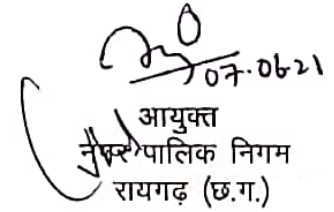 07.06.21
आयुक्त
पालिक निगम
रायगढ़ (छ.ग.)